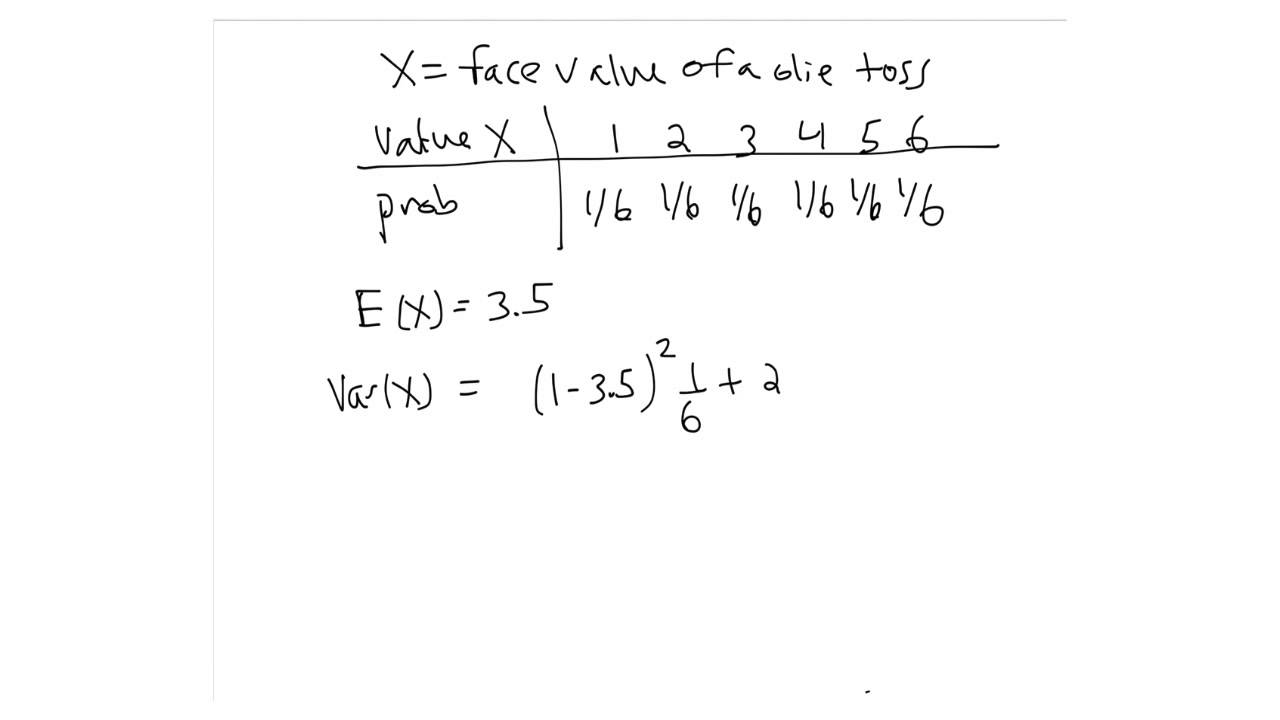 X = face value of a die toss
value X | 1 2 3 4 5 6
prob | 1/6 1/6 1/6 1/6 1/6 1/6
E(X) = 3.5
Var(X) = (1-3.5)² 1/6 + 2